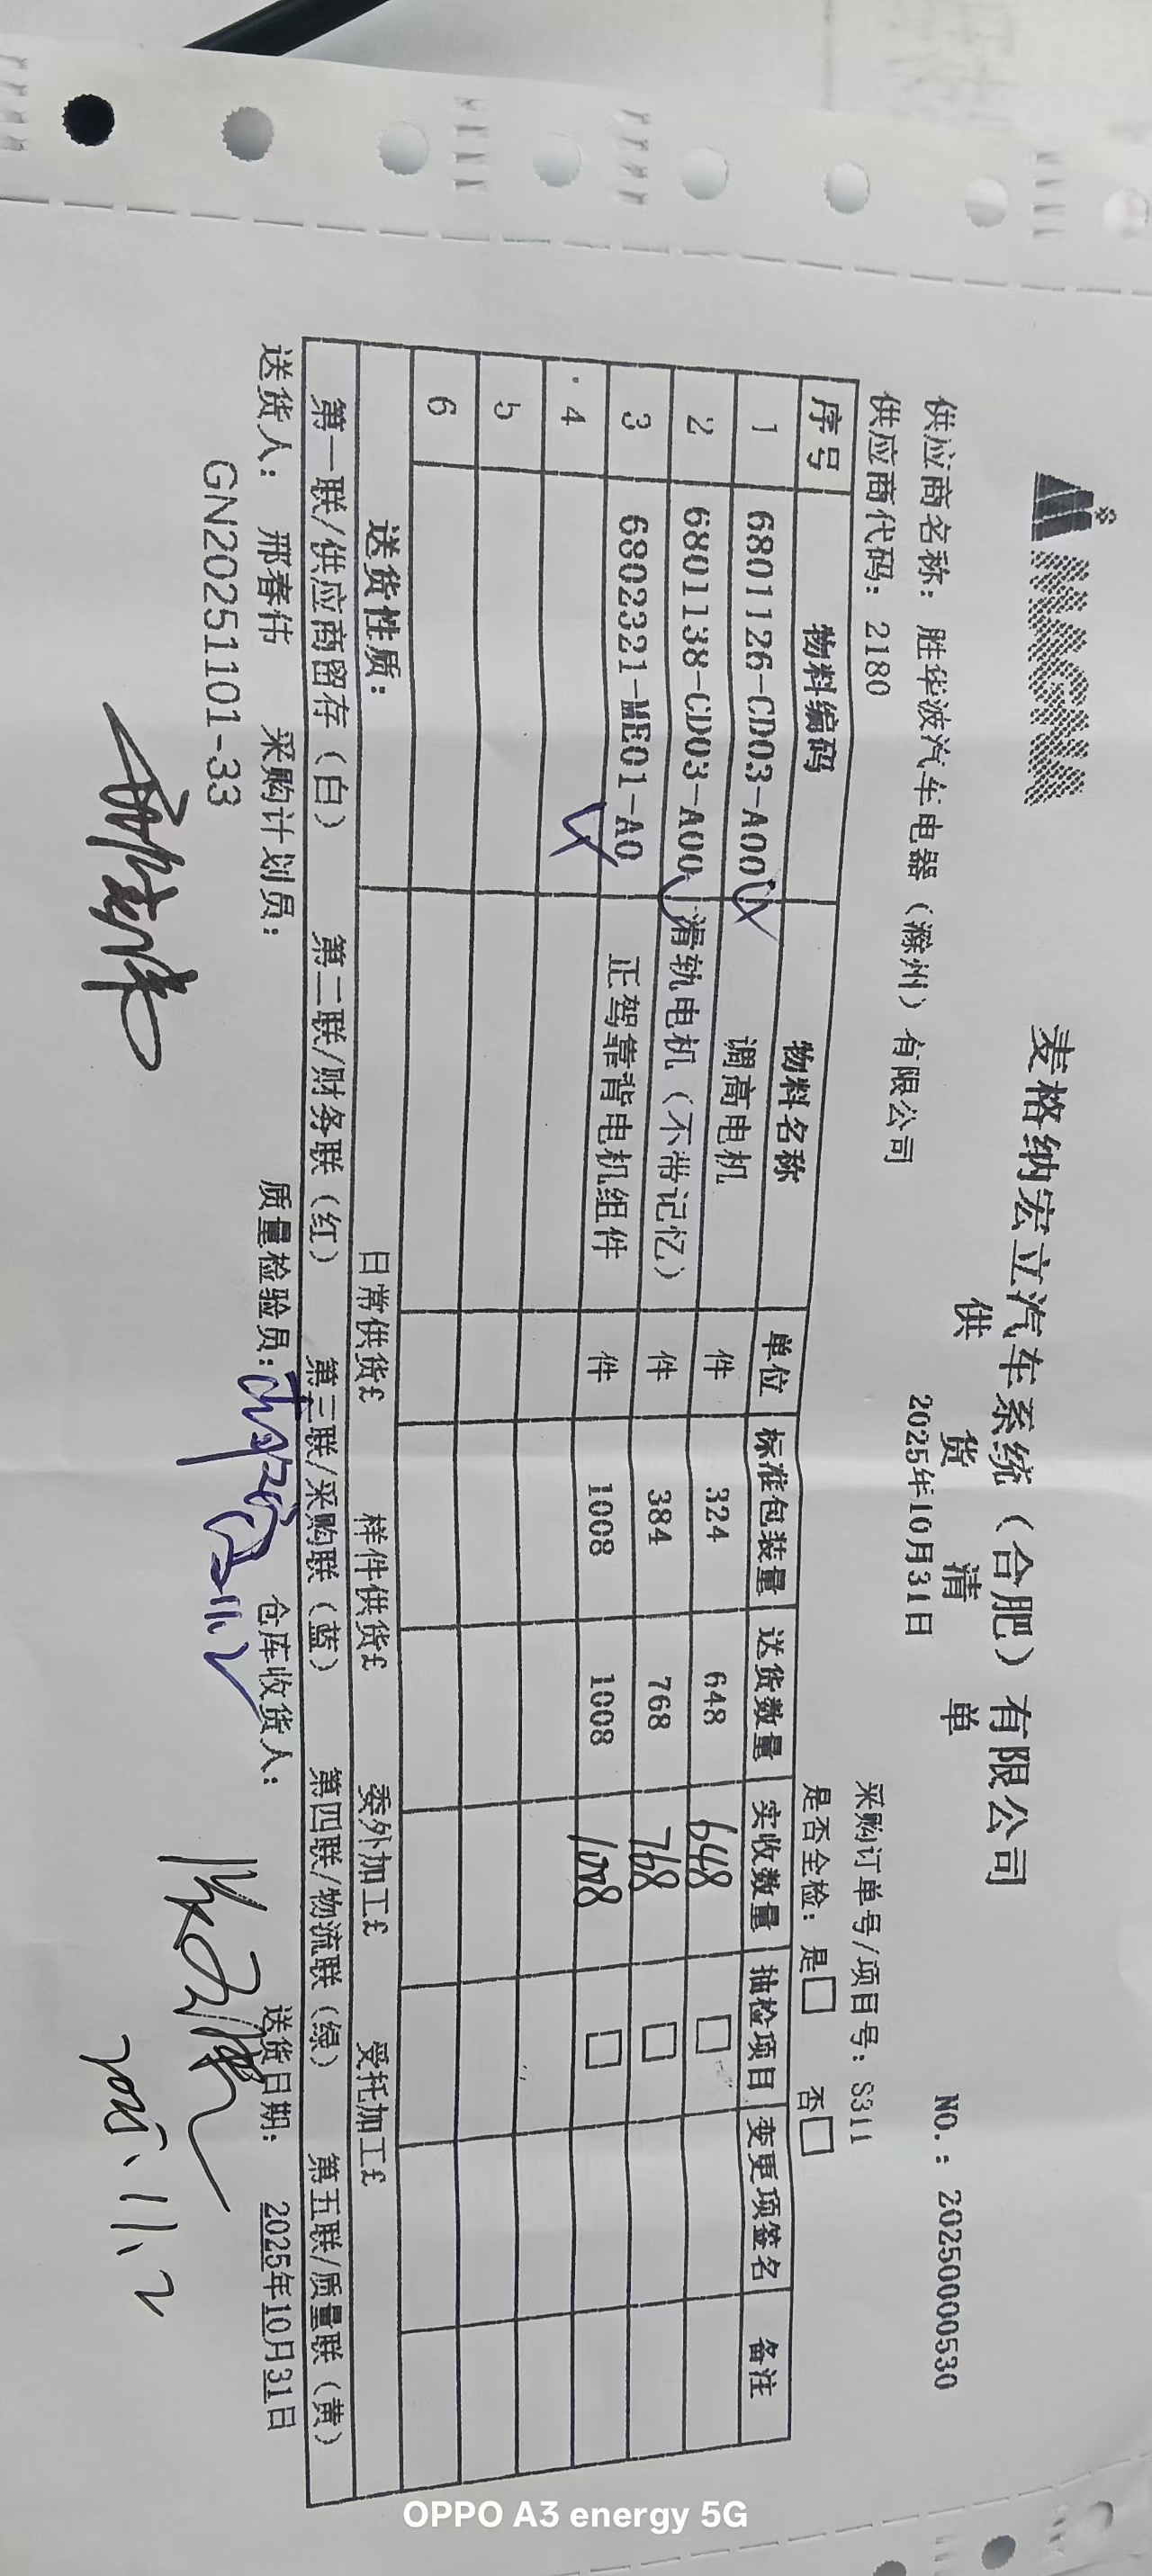 MAGNA
麦格纳宏立汽车系统（合肥）有限公司
供 货 清 单
NO.: 202500000530
2025年10月31日
供应商名称: 胜华波汽车电器（滁州）有限公司
采购订单号/项目号: S311
供应商代码: 2180
是否全检: 是□ 否□
序号 物料编码 物料名称 单位 标准包装量 送货数量 实收数量 抽检项目 变更项签名 备注
1 6801126-CD03-A00 调高电机 件 324 648 648 □
2 6801138-CD03-A00 滑轨电机（不带记忆） 件 384 768 768 □
3 6802321-ME01-A0 正驾靠背电机组件 件 1008 1008 1008 □
4
5
6
送货性质: 日常供货£ 样件供货£ 委外加工£ 受托加工£
第一联/供应商留存（白） 第二联/财务联（红） 第三联/采购联（蓝） 第四联/物流联（绿） 第五联/质量联（黄）
送货人: 邢春伟 采购计划员: 质量检验员: 仓库收货人: 送货日期: 2025年10月31日
GN20251101-33
2025.11.2
OPPO A3 energy 5G